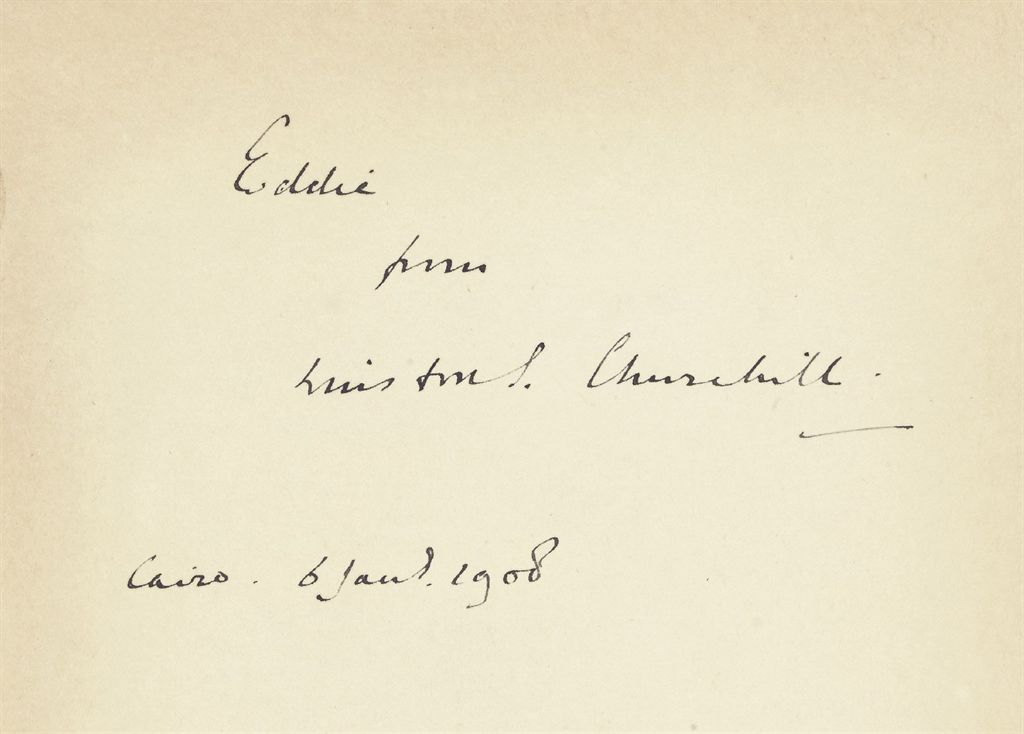 Eddie
from
Winston S. Churchill.
Cairo. 6 Jany. 1908